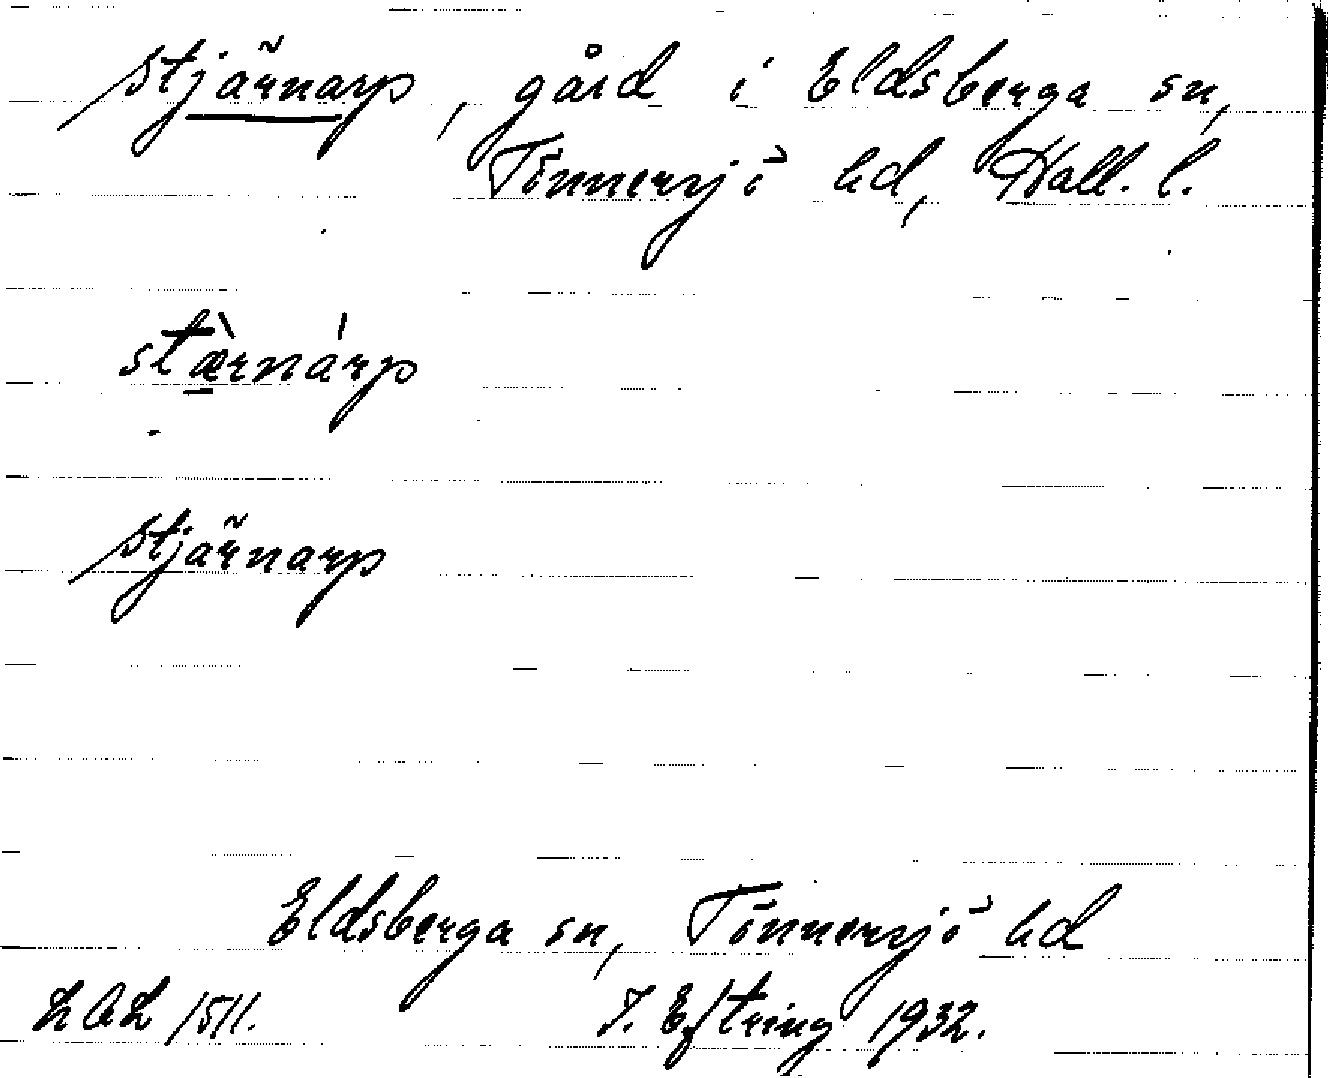 Stjärnarp, gård i Eldsberga sn,
Tönnersjö hd, Hall. l.
stæ̀rnárp
Stjärnarp
Eldsberga sn, Tönnersjö hd
LAL 1511. I. Eftring 1932.